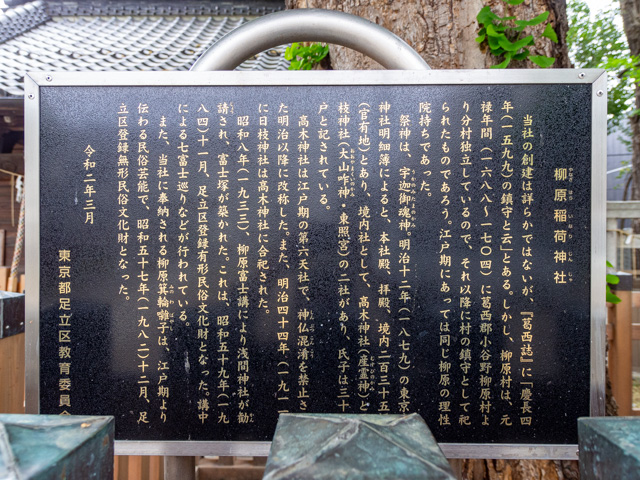 柳原稲荷神社
やなぎはらいなりじんじゃ
当社の創建は詳らかではないが、『葛西誌』に「慶長四
年(一五九九)の鎮守と云」とある。しかし、柳原村は、元
禄年間(一六八八〜一七〇四)に葛西郡小谷野柳原村よ
り分村独立しているので、それ以降に村の鎮守として祀
られたものであろう。江戸期にあっては同じ柳原の理性
院持ちであった。
祭神は、宇迦御魂神。明治十二年(一八七九)の東京
うかのみたまのかみ
神社明細簿によると、本社殿、拝殿、境内二百三十五
(官有地)とあり、境内社として、高木神社(産霊神)と
むすびのかみ
枝神社(大山咋神・東照宮)の二社があり、氏子は三十
おおやまくいのかみ
戸と記されている。
高木神社は江戸期の第六天社で、神仏混淆を禁止さ
た明治以降に改称した。また、明治四十四年(一九一
に日枝神社は高木神社に合祀された。
昭和八年(一九三三)、柳原富士講により浅間神社が勧
請され、富士塚が築かれた。これは、昭和五十九年(一九
八四)十一月、足立区登録有形民俗文化財となった。講中
による七富士巡りなどが行われている。
また、当社に奉納される柳原箕輪囃子は、江戸期より
みのわばやし
伝わる民俗芸能で、昭和五十七年(一九八二)十二月、足
立区登録無形民俗文化財となった。
令和二年三月
東京都足立区教育委員会